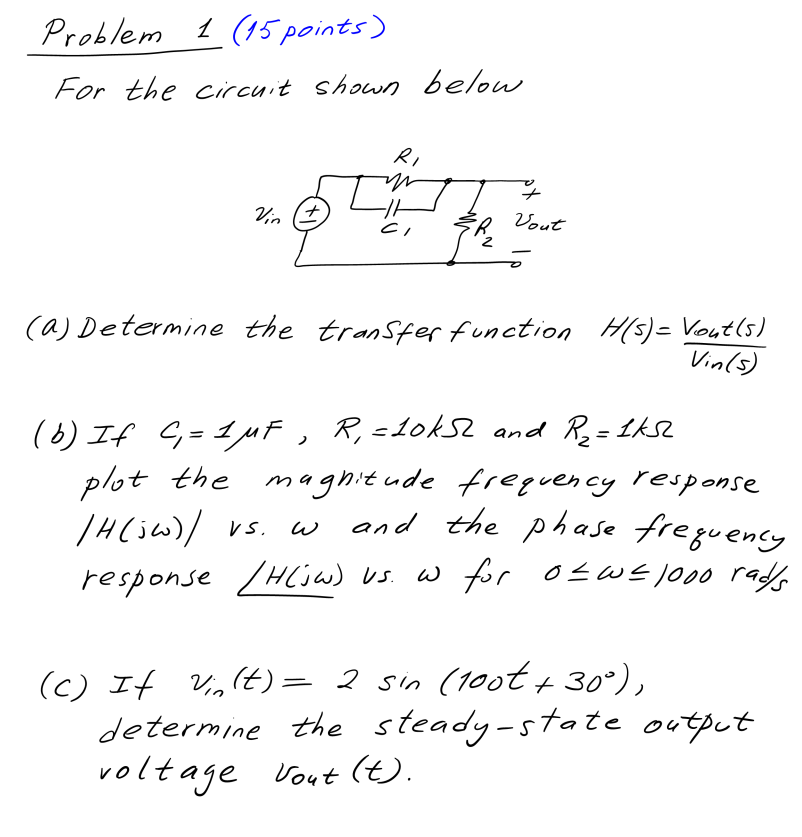 Problem 1 (15 points)
For the circuit shown below
R1
Vin
+
C1
R2
+
Vout
−
(a) Determine the transfer function H(s) = Vout(s) / Vin(s)
(b) If C1 = 1 μF, R1 = 10kΩ and R2 = 1kΩ
plot the magnitude frequency response
|H(jω)| vs. ω and the phase frequency
response ∠H(jω) vs. ω for 0 ≤ ω ≤ 1000 rad/s
(c) If Vin(t) = 2 sin (100t + 30°),
determine the steady-state output
voltage Vout (t).